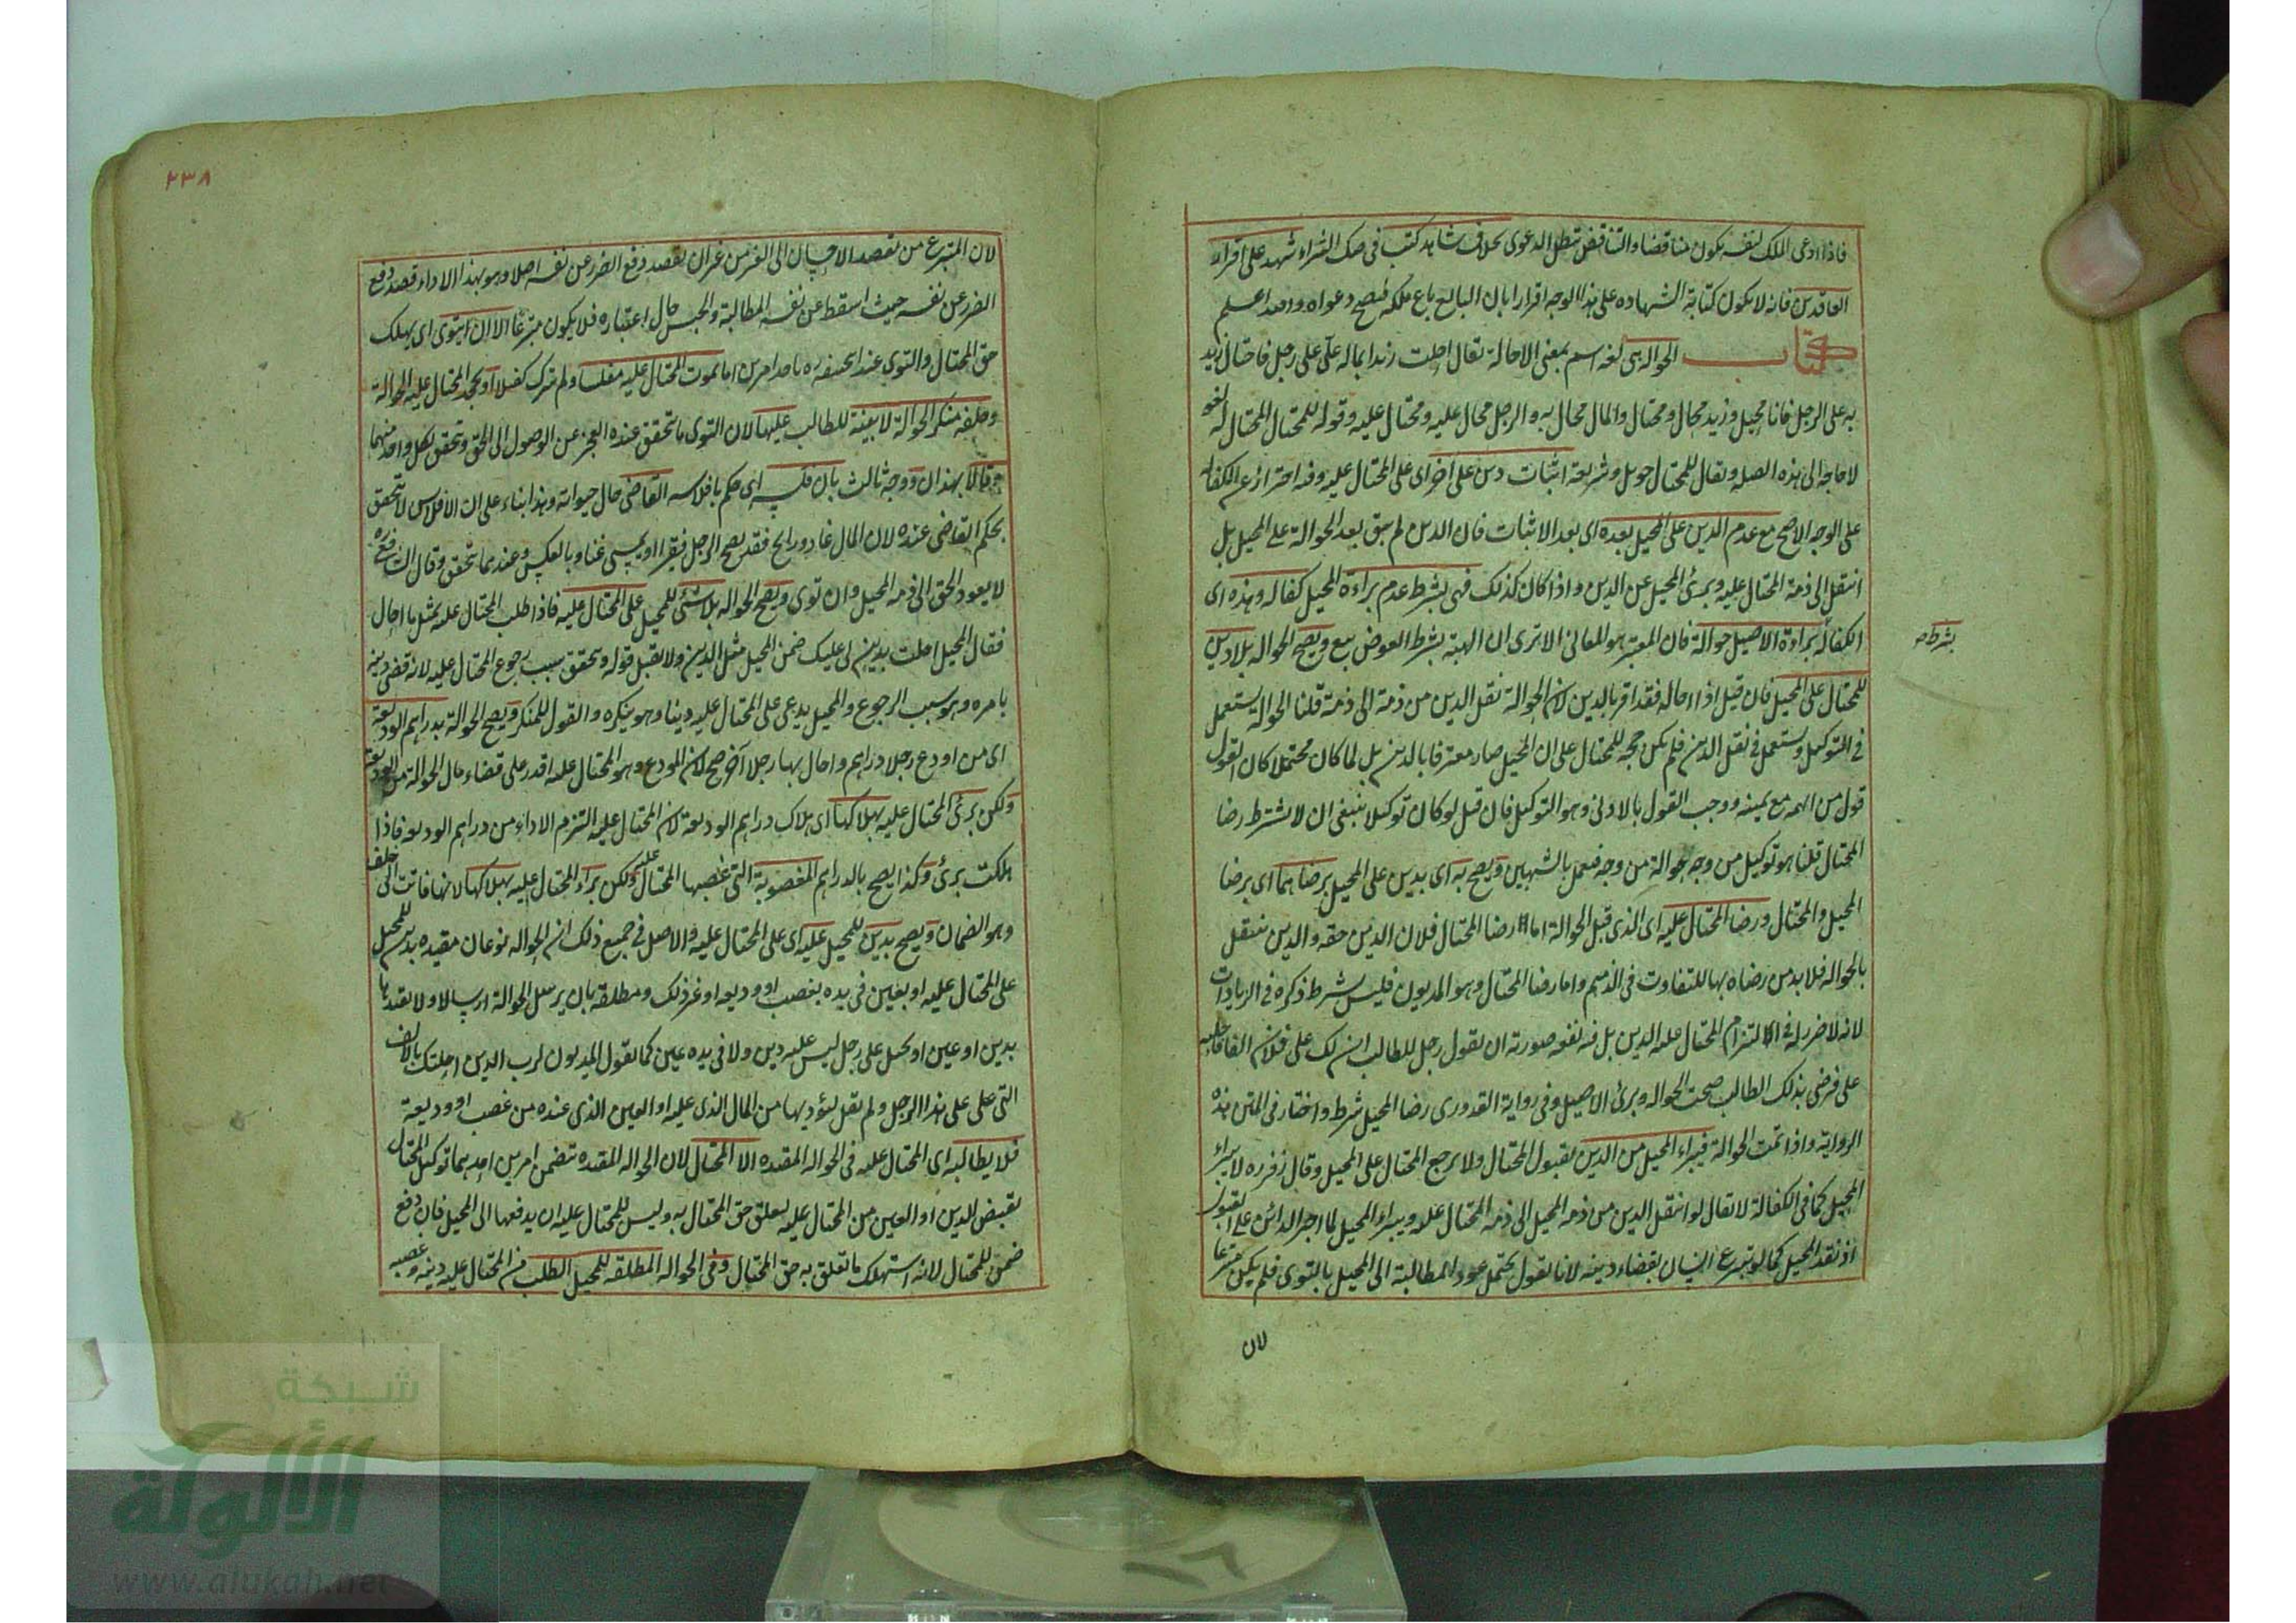 فاذا ادعى الملك لنفسه يكون مناقضا والتناقض تبطل الدعوى بخلاف شاهد كتب فى صك الشراء شهد على اقرار
العاقدين فانه لا يكون كتابة الشهاده على هذا الوجه اقرارا بان البايع باع ملكه فيصح دعواه والله اعلم
كتاب الحواله هى لغه اسم بمعنى الاحالة يقال احلت زيدا بماله على على رجل فاحتال زيد
به على الرجل فانا محيل وزيد محال ومحتال والمال محال به والرجل محال عليه ومحتال عليه وقوله للمحتال المحتال له لغو
لا حاجه الى هذه الصله ويقال للمحتال حويل وشريعة اثبات دين على اخر اى على المحتال عليه وفيه احتراز عن الكفالة
على الوجه الاصح مع عدم الدين على المحيل بعده اى بعد الاثبات فان الدين لم يبق بعد الحوالة على المحيل بل
انتقل الى ذمة المحتال عليه وبرئ المحيل عن الدين واذا كان كذلك فهى بشرط عدم براءة المحيل كفاله وهذه اى
الكفاله براءة الاصيل حوالة فان المعتبر هو المعانى الا ترى ان الهبة بشرط العوض بيع ويصح الحواله بلا دين
بشرط صح
للمحتال على المحيل فان قيل اذا احاله فقد اقر بالدين لان الحوالة نقل الدين من ذمة الى ذمة قلنا الحوالة يستعمل
فى التوكيل ويستعمل فى نقل الدين فلم يكن حجه للمحتال على ان المحيل صار معترفا بالدين بل لما كان محتملا كان القول
قول من اتهمه مع يمينه ووجب القول بالادنى وهو التوكيل فان قيل لو كان توكيلا ينبغى ان لا يشترط رضا
المحتال قلنا هو توكيل من وجه حوالة من وجه فيعمل بالشبهين ويصح به اى بدين على المحيل برضاهما اى برضا
المحيل والمحتال ورضا المحتال عليه اى الذى قبل الحوالة اما رضا المحتال فلان الدين حقه والدين ينتقل
بالحواله فلا بد من رضاه بها للتفاوت فى الذمم واما رضا المحتال وهو المديون فليس بشرط ذكره فى الزيادات
لانه لا ضرر له فى التزام المحتال عليه الدين بل فيه نفعه صورته ان يقول رجل للطالب ان لك على فلان الفا فاحله
على فرضى بذلك الطالب صحت الحواله وبرئ الاصيل وفى رواية القدورى رضا المحيل شرط واختار فى المتن هذه
الرواية واذا تمت الحوالة فيبراء المحيل من الدين بقبول المحتال ولا يرجع المحتال على المحيل وقال زفر ره لا يبراء
المحيل كما فى الكفالة لا يقال لو انتقل الدين من ذمه المحيل الى ذمه المحتال عليه ويبراء المحيل لما اجبر الدائن على القبول
اذ نقد المحيل كما لو تبرع انسان بقضاء دينه لانا نقول يحتمل عود المطالبة الى المحيل بالتوى فلم يكن متبرعا
لان
٢٣٨
لان المتبرع من يقصد الاحسان الى الغير من غير ان يقصد دفع الضرر عن نفسه اصلا وهو بهذا الاداء قصد دفع
الضرر عن نفسه حيث اسقط عن نفسه المطالبة والحبس حال اعتباره فلا يكون متبرعا الا ان يتوى اى يهلك
حق المحتال والتوى عند ابى حنيفه ره باحد امرين اما بموت المحتال عليه مفلسا ولم يترك كفيلا او يجحد المحتال عليه الحوالة
وحلفه منكر الحوالة لا بينة للطالب عليها لان التوى ما تحقق عنده العجز عن الوصول الى الحق وتحقق بكل واحد منهما
وقالا بهذان ووجه ثالث بان فلسه اى حكم بافلاسه القاضى حال حيواته وهذا بناء على ان الافلاس لا يتحقق
بحكم القاضى عنده لان المال غاد ورايح فقد يصبح الرجل فقيرا ويمسى غنيا وبالعكس وعندهما يتحقق وقال الشافعى ره
لا يعود الحق الى ذمه المحيل وان توى ويصح الحواله بلا شئ للمحيل على المحتال عليه فاذا طلب المحتال عليه بمثل ما احال
فقال المحيل احلت بدين لى عليك ضمن المحيل مثل الدين ولا يقبل قوله وتحقق سبب رجوع المحتال عليه لانه قضى دينه
بامره وهو سبب الرجوع والمحيل يدعى على المحتال عليه دينا وهو ينكره والقول للمنكر ويصح الحوالة بدراهم الوديعة
اى من اودع رجلا دراهم واحال بها رجلا آخر صح لان المودع وهو المحتال عليه اقدر على قضاء مال الحوالة من الوديعة
ولكن برئ المحتال عليه بهلاكها اى هلاك دراهم الوديعة لان المحتال عليه التزم الاداء من دراهم الوديعه فاذا
هلكت برئ وكذا يصح بالدراهم المغصوبة التى غصبها المحتال عليه ولكن براء المحتال عليه بهلاكها لانها فاتت الى خلف
وهو الضمان ويصح بدين للمحيل عليه اى على المحتال عليه والاصل فى جميع ذلك ان الحواله نوعان مقيده بدين للمحيل
على المحتال عليه او بعين فى يده بغصب او وديعه او غير ذلك ومطلقة بان يرسل الحوالة ارسالا ولا يقيدها
بدين او عين او يحيل على رجل ليس عليه دين ولا فى يده عين كما يقول المديون لرب الدين احلتك بالالف
التى على على هذا الرجل ولم يقل ليؤديها من المال الذى عليه او العين الذى عنده من غصب او وديعة
فلا يطالبه اى المحتال عليه فى الحواله المقيده الا المحتال لان الحواله المقيده تتضمن امرين احدهما توكيل المحتال
بقبض الدين او العين من المحتال عليه يعلق حق المحتال به وليس للمحتال عليه ان يدفعها الى المحيل فان دفع
ضمن للمحتال لانه استهلك ما تعلق به حق المحتال وفى الحواله المطلقه للمحيل الطلب من المحتال عليه دينه وعصبه
شبكة
الألوكة
www.alukah.net